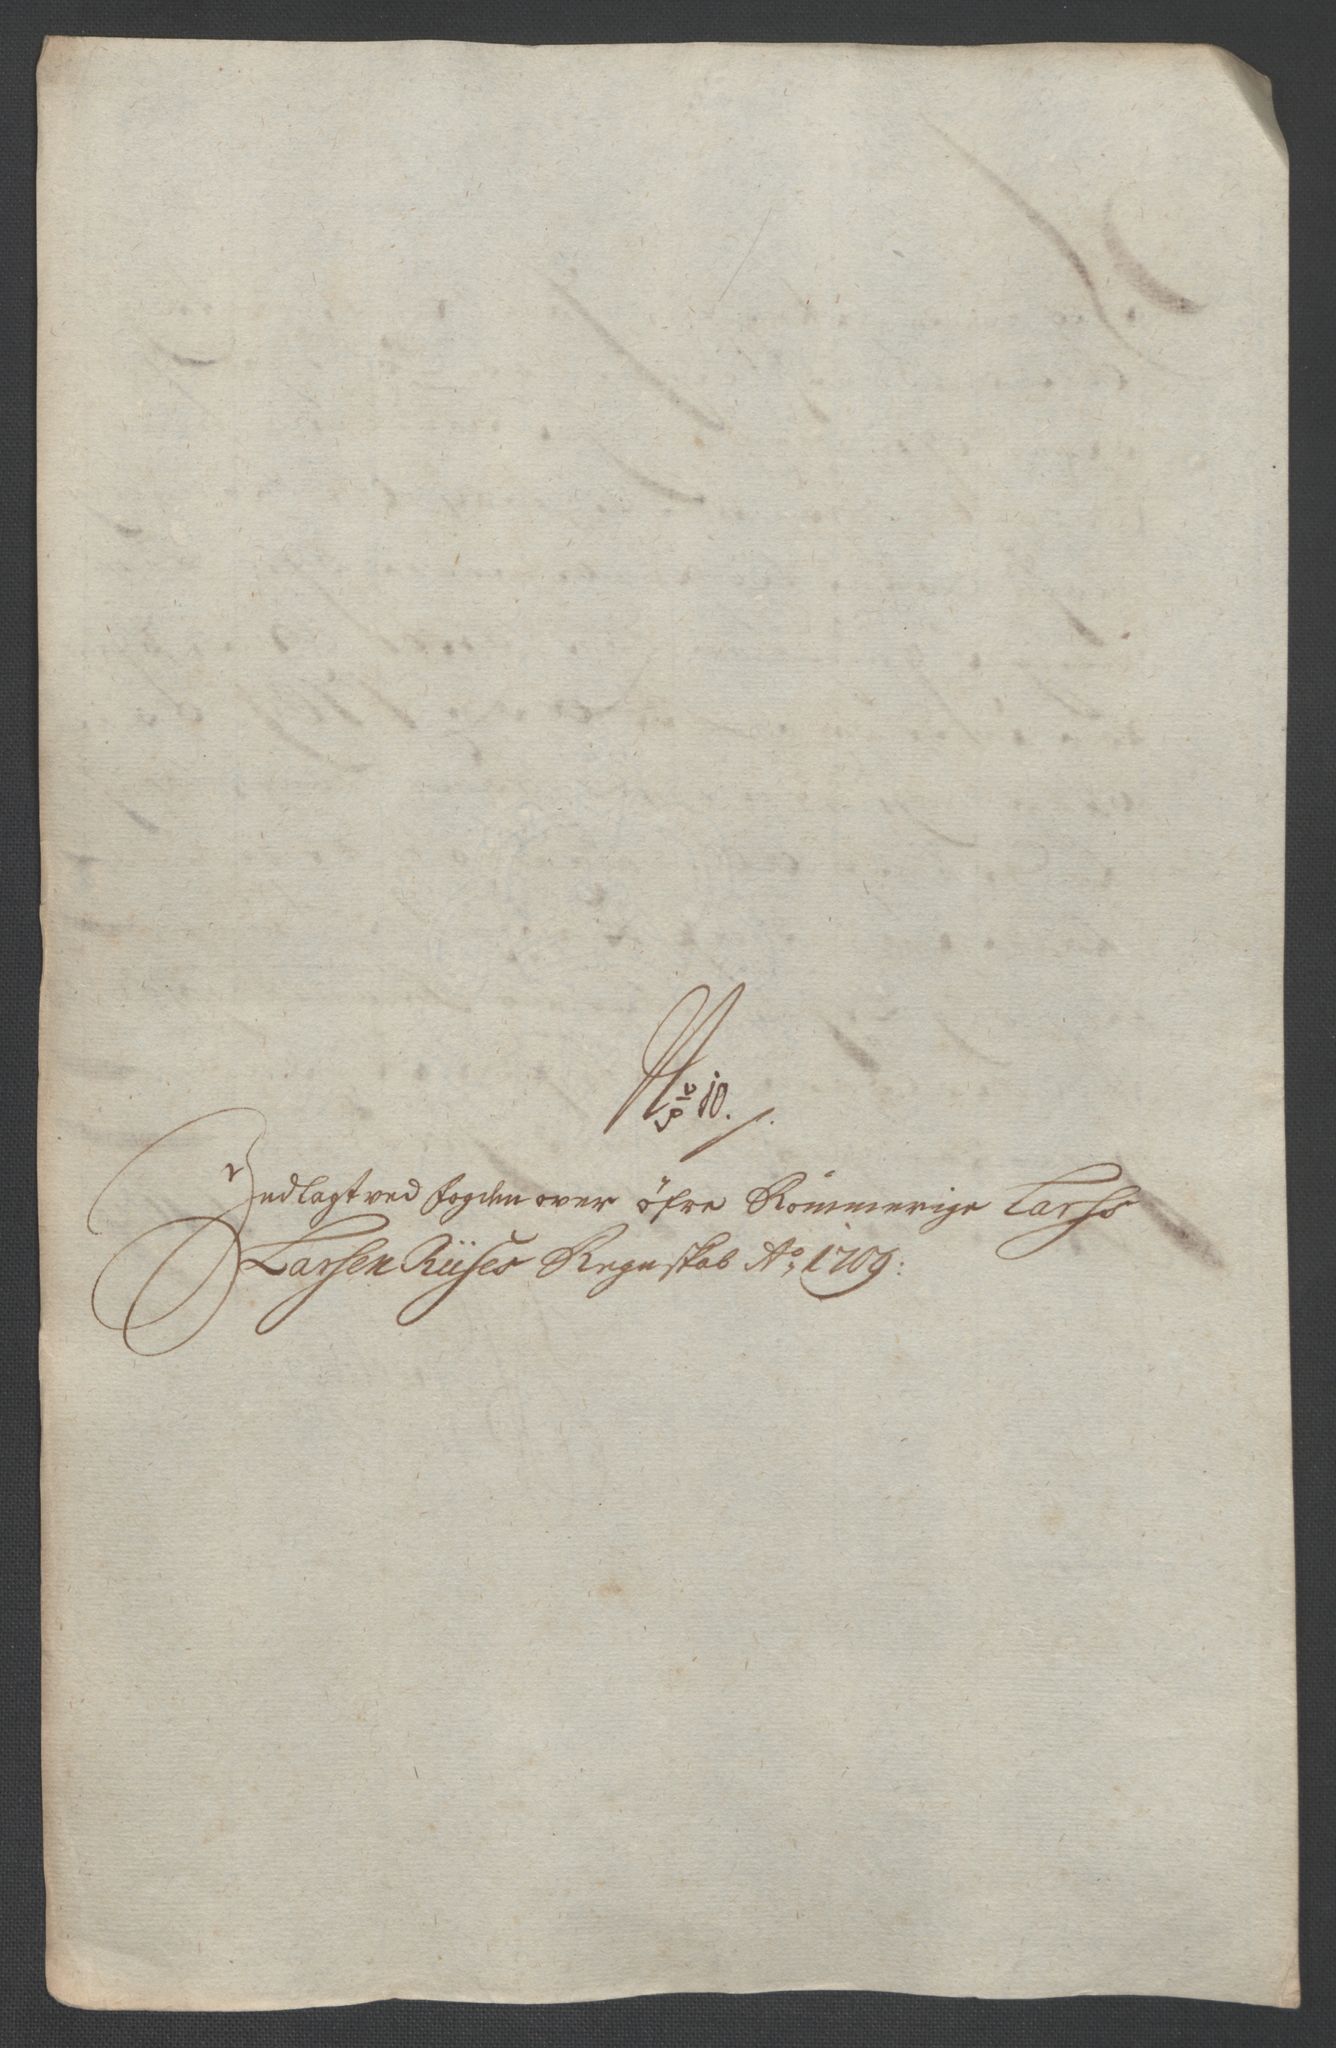 No 10.
Indlagt ved fogden over öfre Rommerige Larss
Larsen Riises Regnskab Ao 1709: